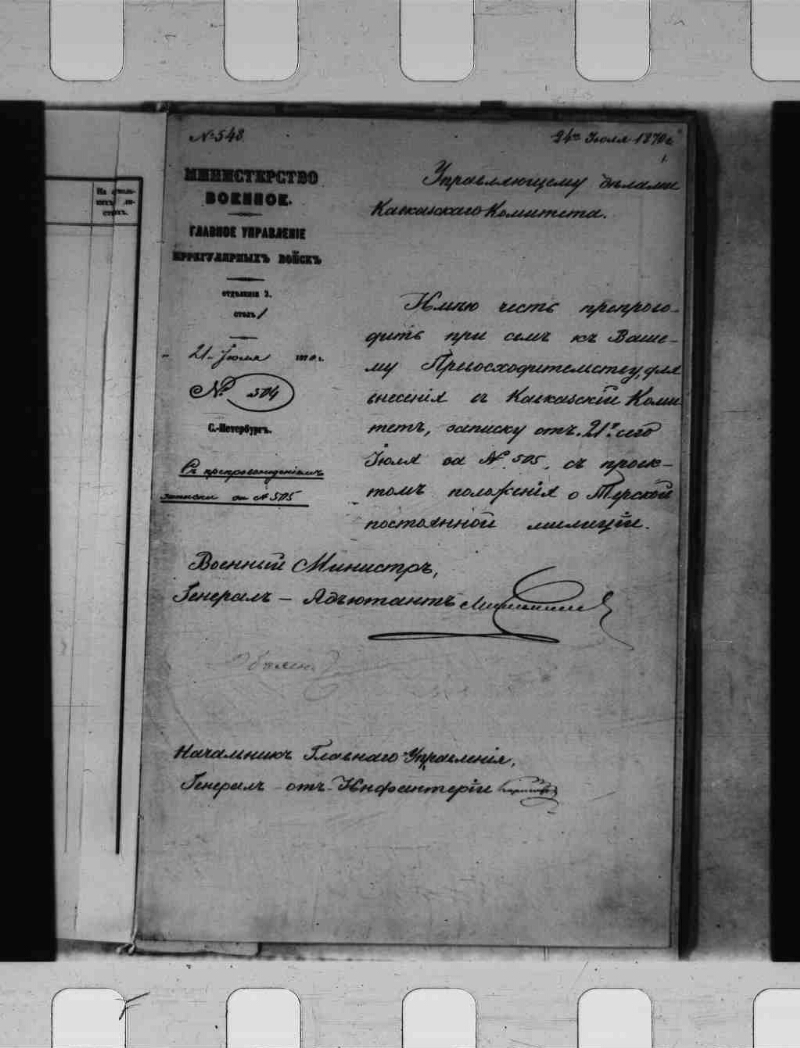 № 548
24го Июля 1870 г.
1
На сколь-
кихъ ли-
стахъ.
МИНИСТЕРСТВО
ВОЕННОЕ.
ГЛАВНОЕ УПРАВЛЕНІЕ
ИРРЕГУЛЯРНЫХЪ ВОЙСКЪ
отдѣленіе 2.
столъ 1
21 Июля 1870 г.
№ 504
С.-Петербургъ.
Съ препровожденіемъ
записки за № 505
Управляющему дѣлами
Кавказскаго Комитета.
Имѣю честь препрово-
дить при семъ къ Ваше-
му Превосходительству, для
внесенія въ Кавказскій Коми-
тетъ, записку отъ 21го сего
Іюля за № 505, съ проек-
томъ положенія о Терской
постоянной милиціи.
Военный Министръ,
Генералъ-Адъютантъ Милютинъ
Начальникъ Главнаго Управленія,
Генералъ отъ Инфантеріи